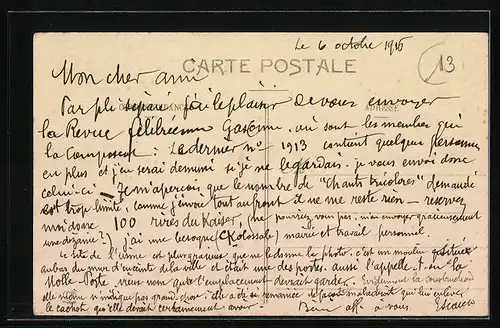 Le 6 octobre 1915
CARTE POSTALE
13
Mon cher ami
Par pli séparé j'ai le plaisir de vous envoyer
CORRESPONDANCE ADRESSE
la Revue félibréenne Gasconne. où sont les membres qui
la composent. Le dernier nº 1913 contient quelques personnes
en plus et j'en serai démuni si je ne le gardais. je vous envoi donc
celui-ci — Je m'aperçois que le nombre de "chants tricolores" demandé
est trop limité, comme j'envoie tout au front il ne me reste rien — réservez
m'en donc 100 rires du Kaiser, (ne pourriez vous pas m'en envoyer gracieusement
une dizaine?) j'ai une besogne (Kolossale) mairie et travail personnel.
Le site de l'usine est plus gracieux que ne le donne la photo, c'est un moulin
au bas du mur d'enceinte de la ville et c'était une des portes. aussi l'appelle-t-on la
Molle Porte vieux nom que l'emplacement devrait garder. Evidemment la construction
elle même n'indique pas grand chose; elle a été remaniée de façon maladroite qui lui enlève
le cachet qu'elle devait certainement avoir. Bien aff. à vous